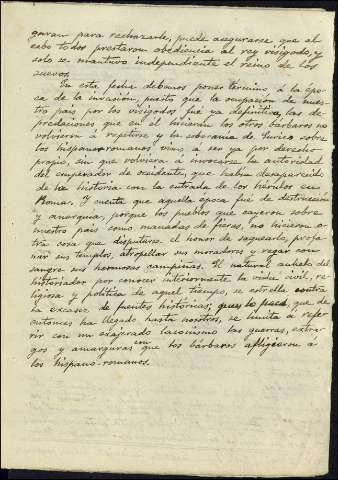 garam para rechazarle, puede asegurarse que al
cabo todos prestaron obediencia al rey visigodo, y
solo se mantuvo independiente el reino de los
suevos.
En esta fecha debemos poner término á la épo-
ca de la invasion, puesto que la ocupacion de nues-
tro pais por los visigodos fué ya definitiva, las de-
predaciones que en él hicieran los otros bárbaros no
volvieron á repetirse y la soberania de Eurico sobre
los hispano-romanos vino á ser ya por derecho
propio, sin que volviera á invocarse la autoridad
del emperador de occidente, que habia desaparecido
de la historia con la entrada de los hérulos en
Roma. Y cuenta que aquella época fué de destruccion
y anarquia, porque los pueblos que cayeron sobre
nuestro pais como manadas de fieras, no hicieron o-
tra cosa que disputarse el honor de saquearlo, profa-
nar sus templos, atropellar sus moradores y regar con
sangre sus hermosas campiñas. Al natural anhelo del
historiador por conocer interiormente la vida civil, re-
ligiosa y política de aquel tiempo, se estrella contra
la escasez de fuentes históricas, pues lo poco, que de
entonces ha llegado hasta nosotros, se limita á refer-
rir con un exagerado laconismo las guerras, estra-
gos y amarguras con que los bárbaros afligieron á
los hispano-romanos.